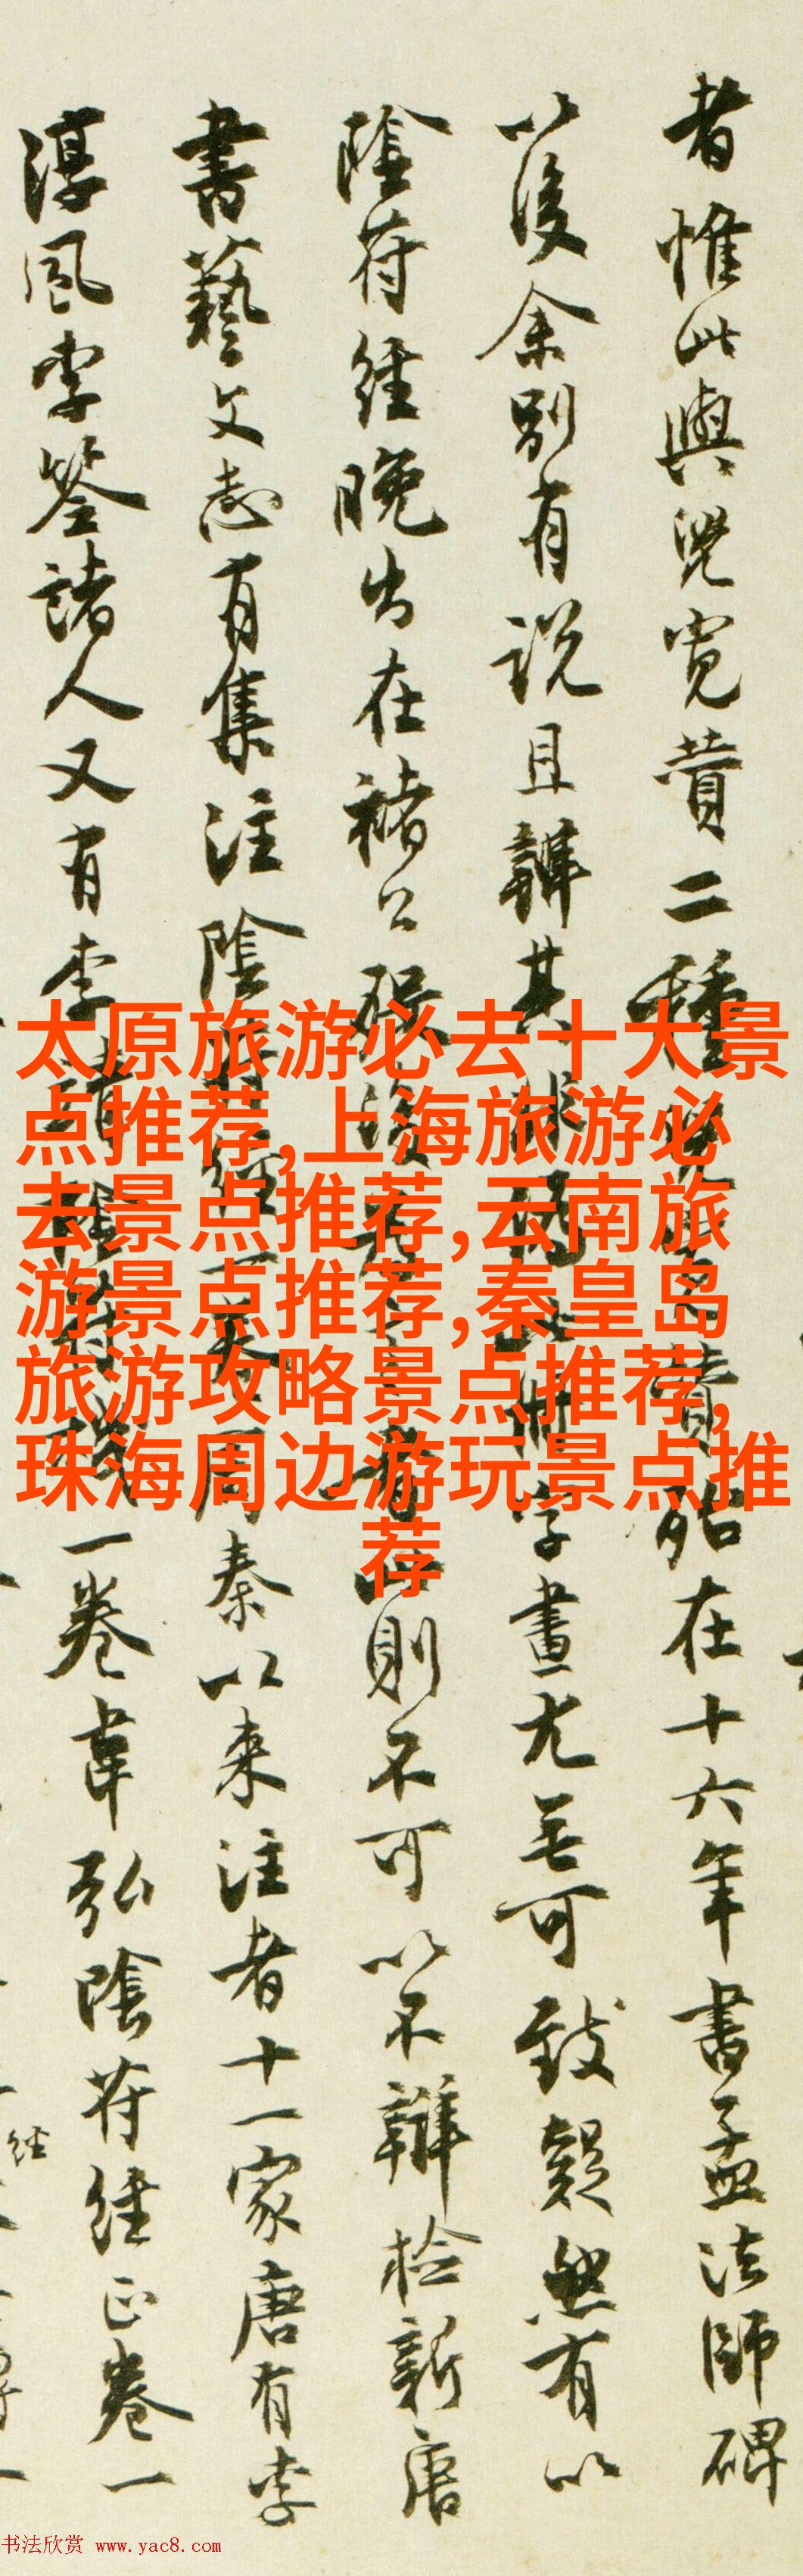 者惟此與兒寬贊二種
在十六年書孟法師碑
以後余別有說且辨其
字畫尤無可致疑然有以
陰符經晚出在褚公
則不可以不辨检新唐
書藝文志有集注陰
秦以来注者十一家唐有李
淳風李筌諸人又有李
一卷韋弘陰符經正卷一
經
太原旅游必去十大景
点推荐,上海旅游必
去景点推荐,云南旅
游景点推荐,秦皇岛
旅游攻略景点推荐,
珠海周边游玩景点推
荐
书法欣赏 www.yac8.com